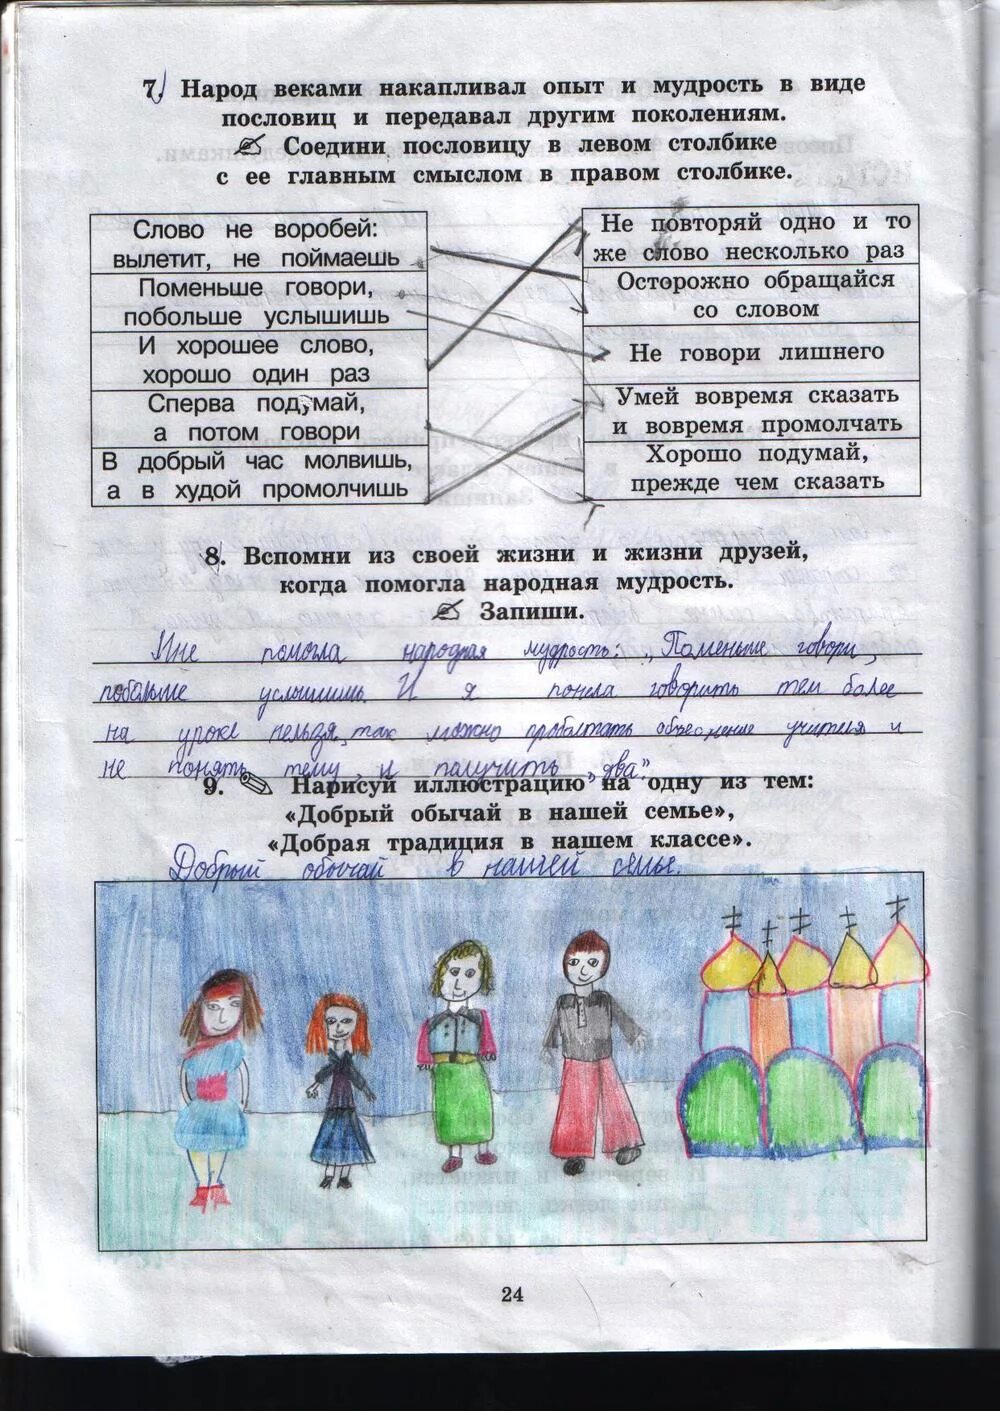 7. Народ веками накапливал опыт и мудрость в виде
пословиц и передавал другим поколениям.
Соедини пословицу в левом столбике
с ее главным смыслом в правом столбике.
Слово не воробей:
вылетит, не поймаешь
Поменьше говори,
побольше услышишь
И хорошее слово,
хорошо один раз
Сперва подумай,
а потом говори
В добрый час молвишь,
а в худой промолчишь
Не повторяй одно и то
же слово несколько раз
Осторожно обращайся
со словом
Не говори лишнего
Умей вовремя сказать
и вовремя промолчать
Хорошо подумай,
прежде чем сказать
8. Вспомни из своей жизни и жизни друзей,
когда помогла народная мудрость.
Запиши.
Мне помогла народная мудрость: „Поменьше говори,
побольше услышишь. И я поняла говорить тем более
на уроке нельзя, так можно проболтать объяснение учителя и
не понять тему, и получить „два".
9. Нарисуй иллюстрацию на одну из тем:
«Добрый обычай в нашей семье»,
«Добрая традиция в нашем классе».
Добрый обычай в нашей семье.
24